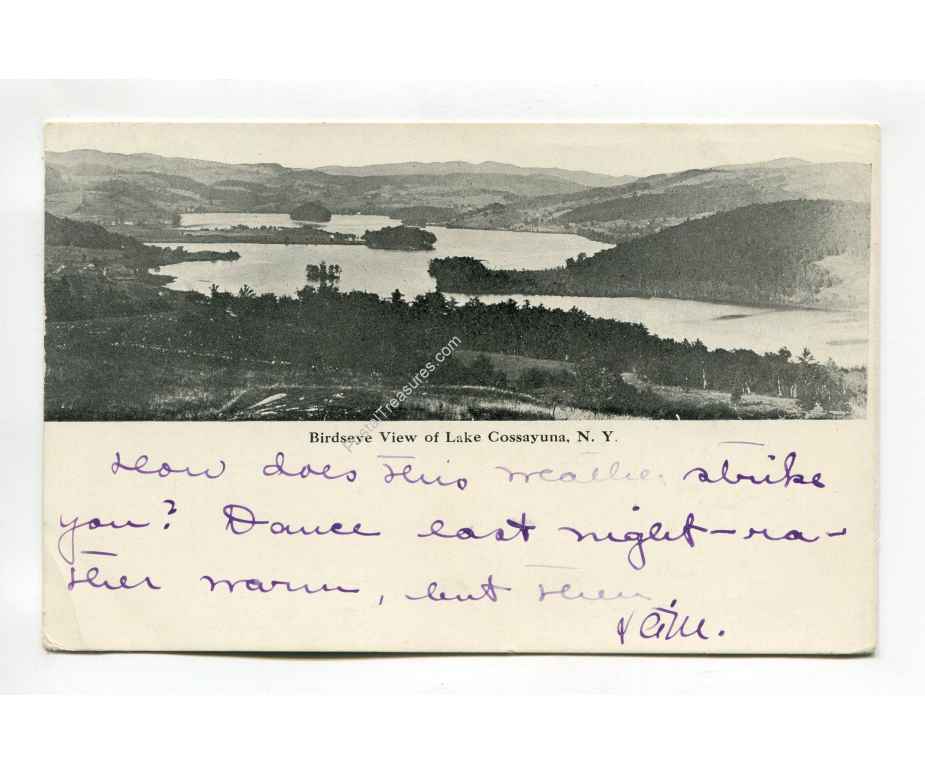 PostalTreasures.com
Birdseye View of Lake Cossayuna, N. Y.
How does this weather strike
you? Dance last night-ra-
ther warm, but then